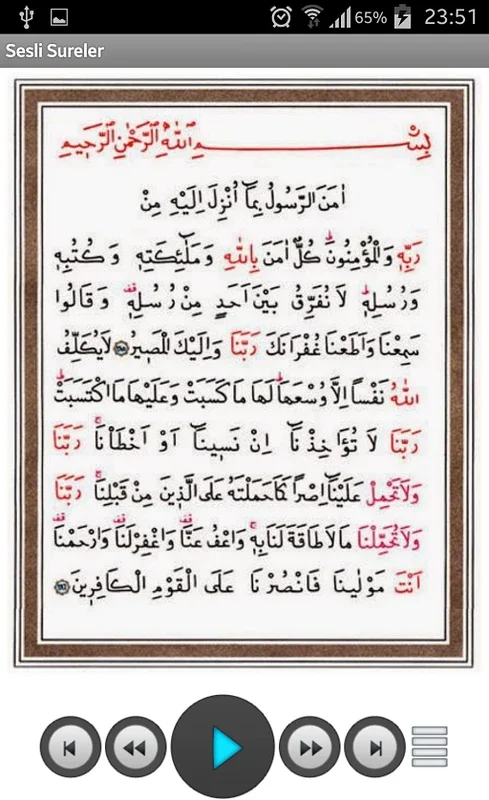 65% 23:51
Sesli Sureler
بِسْمِ اللهِ الرَّحْمٰنِ الرَّحِيمِ
اٰمَنَ الرَّسُولُ بِمَٓا اُنْزِلَ اِلَيْهِ مِنْ
رَبِّهِ وَالْمُؤْمِنُونَۜ كُلٌّ اٰمَنَ بِاللهِ وَمَلٰٓئِكَتِهِ وَكُتُبِهِ
وَرُسُلِهِۜ لَا نُفَرِّقُ بَيْنَ اَحَدٍ مِنْ رُسُلِهِ۠ وَقَالُوا
سَمِعْنَا وَاَطَعْنَا غُفْرَانَكَ رَبَّنَا وَاِلَيْكَ الْمَصِيرُ ﴿٢٨٥﴾ لَا يُكَلِّفُ
اللهُ نَفْسًا اِلَّا وُسْعَهَاۜ لَهَا مَا كَسَبَتْ وَعَلَيْهَا مَا اكْتَسَبَتْۜ
رَبَّنَا لَا تُؤَاخِذْنَٓا اِنْ نَسِينَٓا اَوْ اَخْطَأْنَاۚ رَبَّنَا
وَلَا تَحْمِلْ عَلَيْنَٓا اِصْرًا كَمَا حَمَلْتَهُ عَلَى الَّذِينَ مِنْ قَبْلِنَاۚ رَبَّنَا
وَلَا تُحَمِّلْنَا مَا لَا طَاقَةَ لَنَا بِهِۚ وَاعْفُ عَنَّا۠ وَاغْفِرْ لَنَا۠ وَارْحَمْنَا۠
اَنْتَ مَوْلٰينَا فَانْصُرْنَا عَلَى الْقَوْمِ الْكَافِرِينَ ﴿٢٨٦﴾